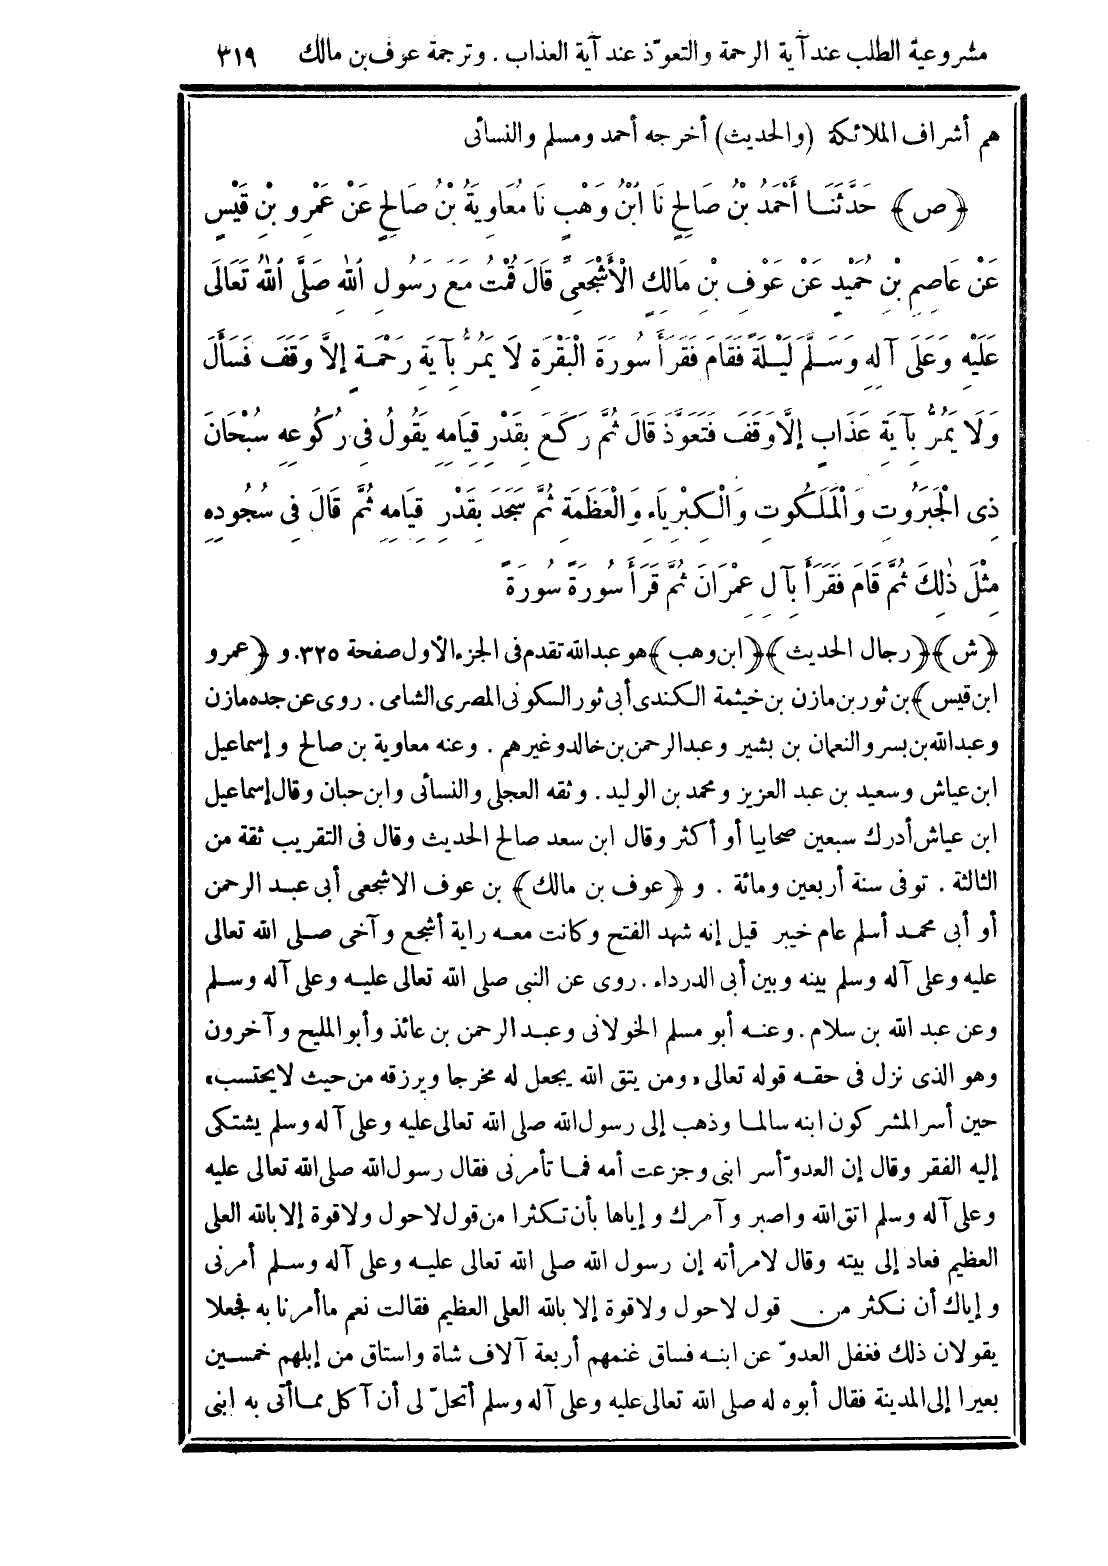 مشروعية الطلب عند آية الرحمة والتعوّذ عند آية العذاب . وترجمة عوف بن مالك ٣١٩
هم أشراف الملائكة (والحديث) أخرجه أحمد ومسلم والنسائى
﴿ص﴾ حَدَّثَنَا أَحْمَدُ بْنُ صَالِحٍ نَا ابْنُ وَهْبٍ نَا مُعَاوِيَةُ بْنُ صَالِحٍ عَنْ عَمْرِو بْنِ قَيْسٍ
عَنْ عَاصِمِ بْنِ حُمَيْدٍ عَنْ عَوْفِ بْنِ مَالِكٍ الْأَشْجَعِىِّ قَالَ قُمْتُ مَعَ رَسُولِ اللهِ صَلَّى اللهُ تَعَالَى
عَلَيْهِ وَعَلَى آلِهِ وَسَلَّمَ لَيْلَةً فَقَامَ فَقَرَأَ سُورَةَ الْبَقْرَةِ لَا يَمُرُّ بِآيَةِ رَحْمَةٍ إِلَّا وَقَفَ فَسَأَلَ
وَلَا يَمُرُّ بِآيَةِ عَذَابٍ إِلَّا وَقَفَ فَتَعَوَّذَ قَالَ ثُمَّ رَكَعَ بِقَدْرِ قِيَامِهِ يَقُولُ فِى رُكُوعِهِ سُبْحَانَ
ذِى الْجَبَرُوتِ وَالْمَلَكُوتِ وَالْكِبْرِيَاءِ وَالْعَظَمَةِ ثُمَّ سَجَدَ بِقَدْرِ قِيَامِهِ ثُمَّ قَالَ فِى سُجُودِهِ
مِثْلَ ذٰلِكَ ثُمَّ قَامَ فَقَرَأَ بِآلِ عِمْرَانَ ثُمَّ قَرَأَ سُورَةً سُورَةً
﴿ش﴾ ﴿رجال الحديث﴾ ﴿ابن وهب﴾ هو عبدالله تقدم فى الجزء الأول صفحة ٣٢٥. و ﴿عمرو
ابن قيس﴾ بن ثور بن مازن بن خيثمة الكندى أبى ثور السكونى المصرى الشامى . روى عن جده مازن
وعبدالله بن بسر والنعمان بن بشير وعبدالرحمن بن خالد وغيرهم . وعنه معاوية بن صالح وإسماعيل
ابن عياش وسعيد بن عبد العزيز ومحمد بن الوليد . وثقه العجلى والنسائى وابن حبان وقال إسماعيل
ابن عياش أدرك سبعين صحابيا أو أكثر وقال ابن سعد صالح الحديث وقال فى التقريب ثقة من
الثالثة . توفى سنة أربعين ومائة . و ﴿عوف بن مالك﴾ بن عوف الاشجعى أبى عبد الرحمن
أو أبى محمد أسلم عام خيبر قيل إنه شهد الفتح وكانت معه راية أشجع وآخى صلى الله تعالى
عليه وعلى آله وسلم بينه وبين أبى الدرداء . روى عن النبى صلى الله تعالى عليه وعلى آله وسلم
وعن عبد الله بن سلام . وعنه أبو مسلم الخولانى وعبد الرحمن بن عائذ وأبو المليح وآخرون
وهو الذى نزل فى حقه قوله تعالى «ومن يتق الله يجعل له مخرجا ويرزقه من حيث لا يحتسب»
حين أسر المشركون ابنه سالما وذهب إلى رسول الله صلى الله تعالى عليه وعلى آله وسلم يشتكى
إليه الفقر وقال إن العدوّ أسر ابنى وجزعت أمه فما تأمرنى فقال رسول الله صلى الله تعالى عليه
وعلى آله وسلم اتق الله واصبر وآمرك وإياها بأن تكثرا من قول لاحول ولا قوة إلا بالله العلى
العظيم فعاد إلى بيته وقال لامرأته إن رسول الله صلى الله تعالى عليه وعلى آله وسلم أمرنى
وإياك أن نكثر من قول لاحول ولاقوة إلا بالله العلى العظيم فقالت نعم ما أمرنا به فجعلا
يقولان ذلك فغفل العدوّ عن ابنه فساق غنمهم أربعة آلاف شاة واستاق من إبلهم خمسين
بعيرا إلى المدينة فقال أبوه له صلى الله تعالى عليه وعلى آله وسلم أتحلّ لى أن آكل مما أتى به ابنى